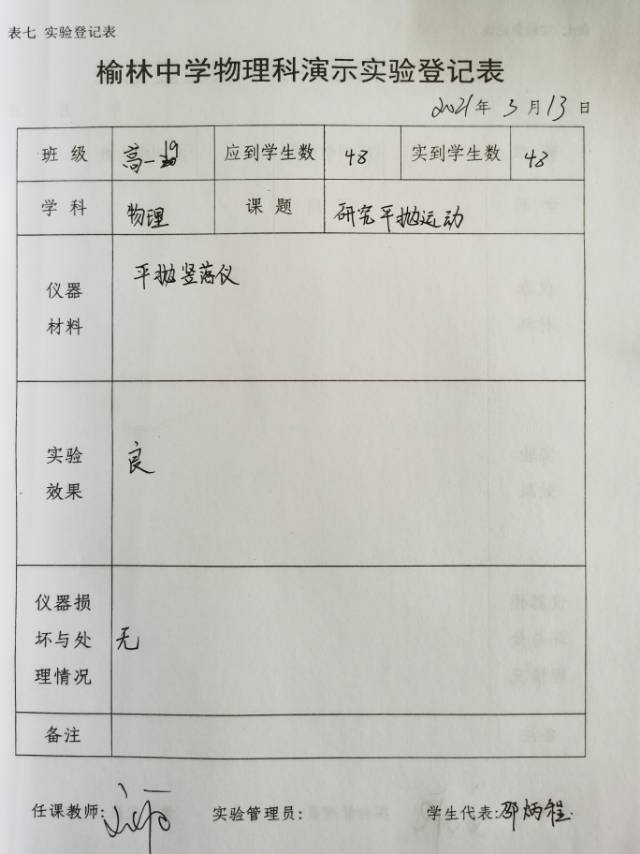 表七 实验登记表
榆林中学物理科演示实验登记表
2021年 3月13日
班级 高一19 应到学生数 48 实到学生数 48
学科 物理 课题 研究平抛运动
仪器材料 平抛竖落仪
实验效果 良
仪器损坏与处理情况 无
备注
任课教师: 实验管理员: 学生代表:邵炳程